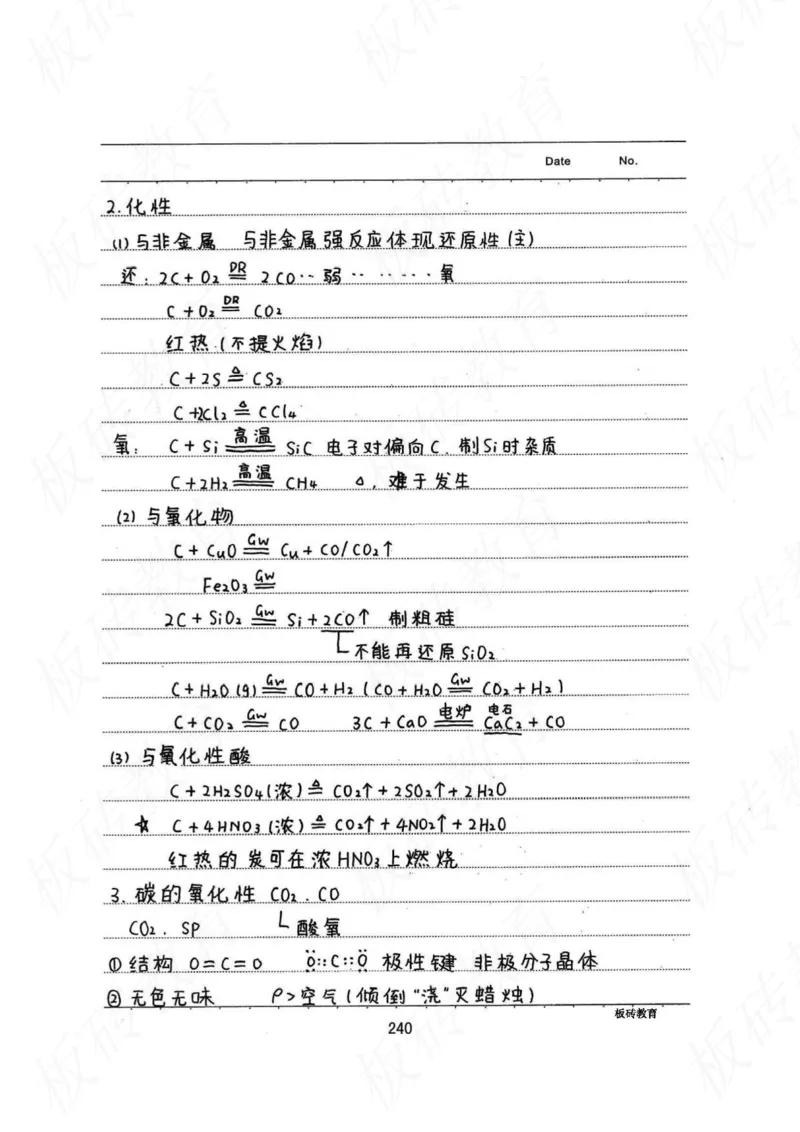 Date No.
2.化性
(1)与非金属 与非金属强反应体现还原性(主)
还:2C+O₂ DR══ 2CO‥弱‥‥‥‥氧
C+O₂ DR══ CO₂
红热.(不提火焰)
C+2S △══ CS₂
C+2Cl₂ △══ CCl₄
氧: C+Si 高温══ SiC 电子对偏向C.制Si时杂质
C+2H₂ 高温══ CH₄ △,难于发生
(2)与氧化物
C+CuO GW══ Cu+CO/CO₂↑
Fe₂O₃ GW══
2C+SiO₂ GW══ Si+2CO↑ 制粗硅
不能再还原SiO₂
C+H₂O(g) GW══ CO+H₂(CO+H₂O GW══ CO₂+H₂)
C+CO₂ GW══ CO 3C+CaO 电炉══ 电石 CaC₂+CO
(3)与氧化性酸
C+2H₂SO₄(浓) △══ CO₂↑+2SO₂↑+2H₂O
☆ C+4HNO₃(浓) △══ CO₂↑+4NO₂↑+2H₂O
红热的炭可在浓HNO₃上燃烧
3.碳的氧化性 CO₂.CO
CO₂.SP 酸氧
①结构 O=C=O :Ö::C::Ö: 极性键 非极分子晶体
②无色无味 ρ>空气(倾倒"浇"灭蜡烛)
板砖教育
240
板砖教育